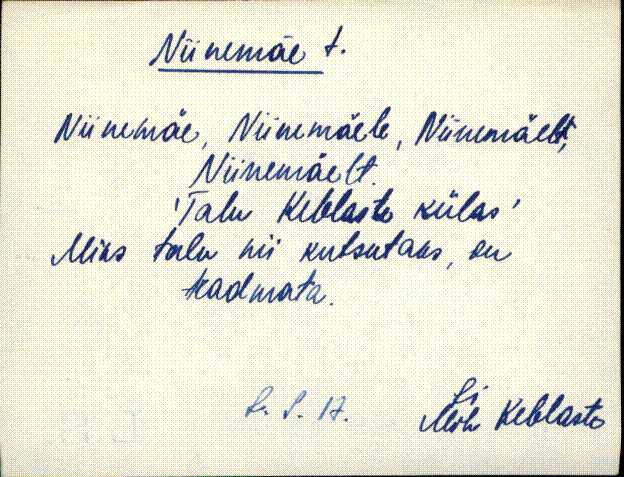 Niinemäe t.
Niinemäe, Niinemäele, Niinemäelt,
Niinemäelt.
'Talu Keblaste külas'
Miks talu nii kutsutaks, on
teadmata.
S. S. 17.
Mih Keblaste